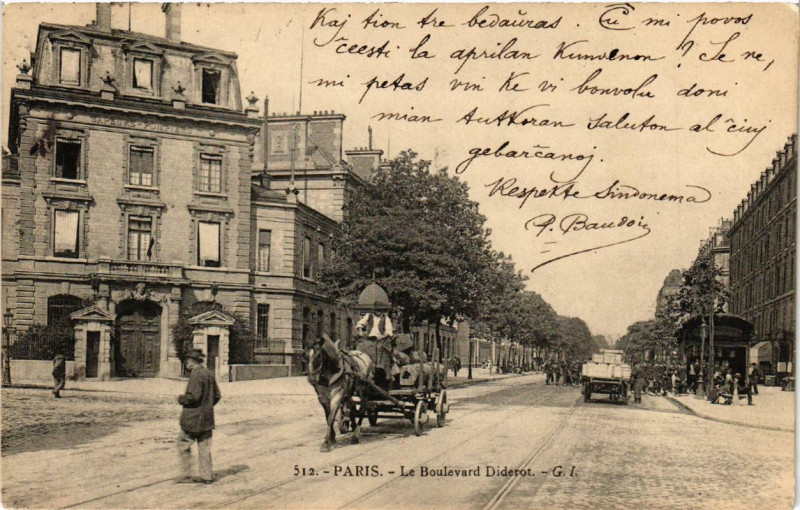 Kaj tion tre bedaŭras. Ĉu mi povos
ĉeesti la aprilan Kunvenon? Se ne,
mi petas vin Ke vi bonvolu doni
mian tutkoran Saluton al ĉiuj
gebarĉanoj.
Respekte Sindonema
P. Baudoin
512. - PARIS. - Le Boulevard Diderot. - G. I.